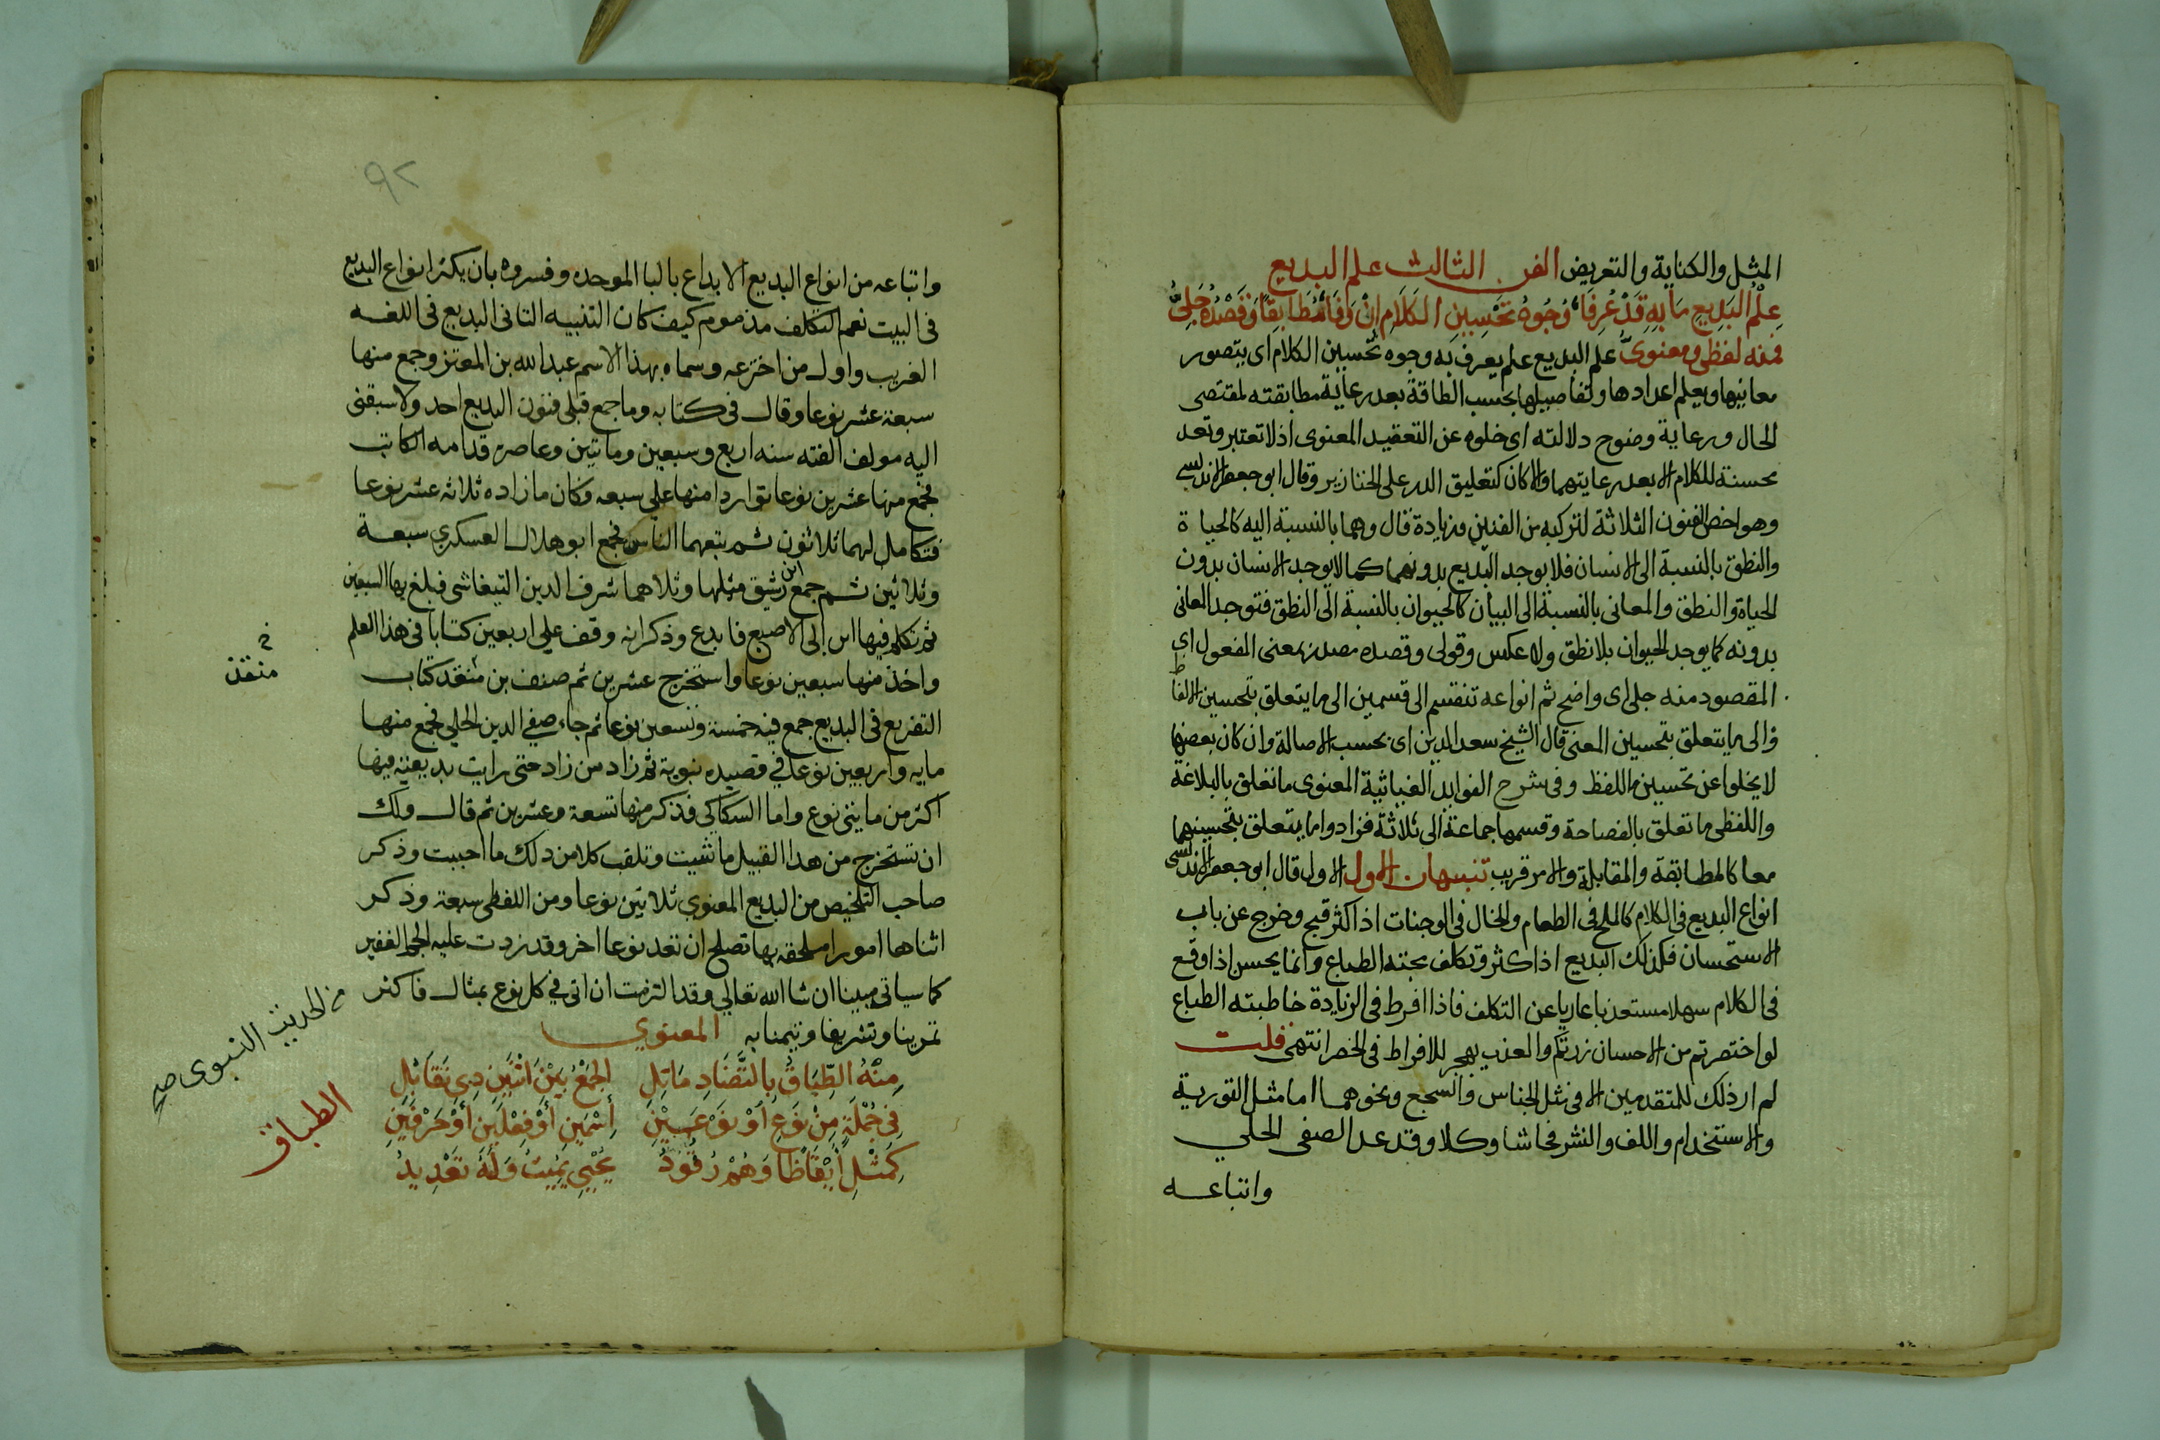 المثل والكناية والتعريض الفن الثالث علم البديع
عِلْمُ البَدِيعِ مَا بِهِ قَدْ عُرِفَا وُجُوهُ تَحْسِينِ الكَلَامِ اِنْ وَفَا مُطَابِقًا وَقَصْدُهُ جَلِيُّ
فمنه لفظى ومعنوىّ علم البديع علم يعرف به وجوه تحسين الكلام اى يتصور
معانيها ويعلم اعدادها وتفاصيلها بحسب الطاقة بعد رعاية مطابقته لمقتضى
الحال ورعاية وضوح دلالته اى خلوه عن التعقيد المعنوى اذ لا تعتبر وتعد
محسنة للكلام الا بعد رعايتهما والا كان كتعليق الدر على الخنازير وقال ابو جعفر الاندلسى
وهو اخص الفنون الثلاثة لتركبه من الفنين وزيادة قال وهما بالنسبة اليه كالحياة
والنطق بالنسبة الى الانسان فلا يوجد البديع بدونهما كما لا يوجد الانسان بدون
الحياة والنطق والمعانى بالنسبة الى البيان كالحيوان بالنسبة الى النطق فتوجد المعانى
بدونه كما يوجد الحيوان بلا نطق ولا عكس وقولى وقصده مصدر بمعنى المفعول اى
المقصود منه جلى اى واضح ثم انواعه تنقسم الى قسمين الى ما يتعلق بتحسين الالفاظ
والى ما يتعلق بتحسين المعنى قال الشيخ سعد الدين اى بحسب الاصالة وان كان بعضها
لا يخلوا عن تحسين اللفظ وفى شرح الفوايد الغياثية المعنوى ما تعلق بالبلاغة
واللفظى ما تعلق بالفصاحة وقسمها جماعة الى ثلاثة فزادوا ما يتعلق بتحسينهما
معا كالمطابقة والمقابلة والامر قريب تنبيهان الاول الاول قال ابو جعفر الاندلسى
انواع البديع فى الكلام كالملح فى الطعام والخال فى الوجنات اذا كثر قبح وخرج عن باب
الاستحسان فكذلك البديع اذا كثر وتكلف مجته الطباع وانما يحسن اذا وقع
فى الكلام سهلا مستعذبا عاريا عن التكلف فاذا افرط فى الزيادة خاطبته الطباع
لو اختصرتم من الاحسان زرتكم والعذب يهجر للافراط فى الخصر انتهى قلت
لم ار ذلك للمتقدمين الا فى مثل الجناس والسجع ونحوهما اما مثل التورية
والاستخدام واللف والنشر فحاشا وكلا وقد عد الصفى الحلى
واتباعه
٩٢
واتباعه من انواع البديع الابداع بالبا الموحده وفسروه بان يكثر انواع البديع
فى البيت نعم التكلف مذموم كيف كان التنبيه الثانى البديع فى اللغه
الغريب واول من اخترعه وسماه بهذا الاسم عبد الله بن المعتز وجمع منها
سبعة عشر نوعا وقال فى كتابه وما جمع قبلى فنون البديع احد ولا سبقنى
اليه مولف الفته سنه اربع وسبعين ومائتين وعاصره قدامه الكاتب
فجمع منها عشرين نوعا تواردا منها على سبعه وكان ما زاده ثلاثه عشر نوعا
فتكامل لهما ثلاثون ثم تبعهما الناس فجمع ابو هلال العسكرى سبعة
وثلاثين ثم جمع ابن رشيق مثلها وتلاهما شرف الدين التيفاشى فبلغ بها السبعين
ثم تكلم فيها ابن ابى الاصبع فابدع وذكر انه وقف على اربعين كتابا فى هذا العلم
واخذ منها سبعين نوعا واستخرج عشرين ثم صنف بن منقد كتاب
التفريع فى البديع جمع فيه خمسة وتسعين نوعا ثم جاء صفى الدين الحلى فجمع منها
مايه واربعين نوعا فى قصيده نبوية ثم زاد من زاد حتى رايت بديعية فيها
اكثر من مايتى نوع واما السكاكى فذكر منها تسعة وعشرين ثم قال ولك
ان تستخرج من هذا القبيل ما شيت وتلقب كلا من ذلك ما احببت وذكر
صاحب التلخيص من البديع المعنوى ثلاثين نوعا ومن اللفظى سبعة وذكر
اثناها امورا ملحقه بها تصلح ان تعد نوعا اخر وقد زدت عليه الجم الغفير
كما سياتى مبينا ان شا الله تعالى وقد التزمت ان اتى فى كل نوع بمثال فاكثر
تمرينا وتشريفا وتيمنا به المعنوى
مِنْهُ الطِّبَاقُ بِالتَّضَادِ مَا تُلِى الجَمْعُ بَيْنَ اثْنَيْنِ ذِى تَقَابُلِ
فِى جُمْلَةٍ مِنْ نَوْعٍ أَوْ نَوْعَيْنِ اِسْمَيْنِ أَوْ فِعْلَيْنِ أَوْ حَرْفَيْنِ
كَمِثْلِ أَيْقَاظًا وَهُمْ رُقُودُ يُحْيِى يُمِيتُ وَلَهُ تَعْدِيدُ
منقذ
من الحديث النبوى صح
الطباق